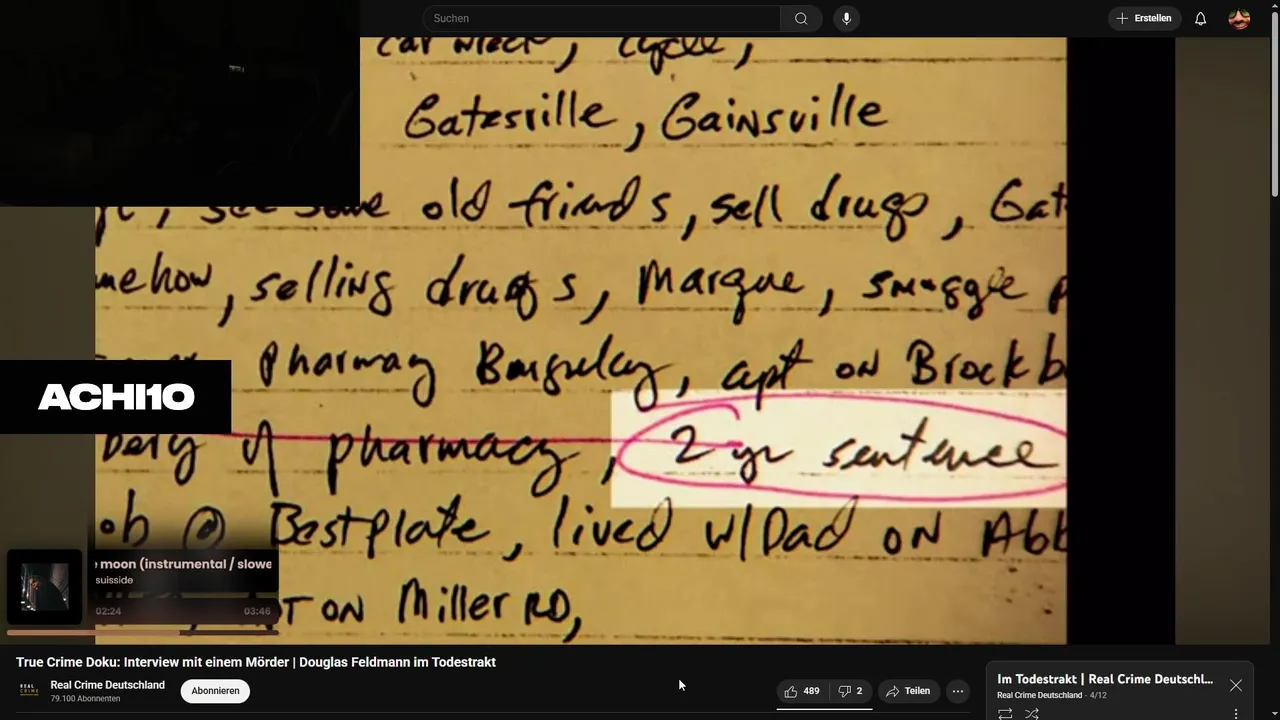 Suchen
Erstellen
car wreck, cycle,
Gatesville, Gainsville
see some old friends, sell drugs, Gat
mehow, selling drugs, Marque, smuggle p
Pharmacy Burgulay, apt on Brockb
bery of pharmacy, 2 yr sentence
ACHI10
ob @ Bestplate, lived w/Dad on Abb
moon (instrumental / slowe
suisside
02:24 03:46
ON Miller RD,
True Crime Doku: Interview mit einem Mörder | Douglas Feldmann im Todestrakt
Real Crime Deutschland
79.100 Abonnenten
Abonnieren
489
2
Teilen
Im Todestrakt | Real Crime Deutschl...
Real Crime Deutschland - 4/12
REAL CRIME